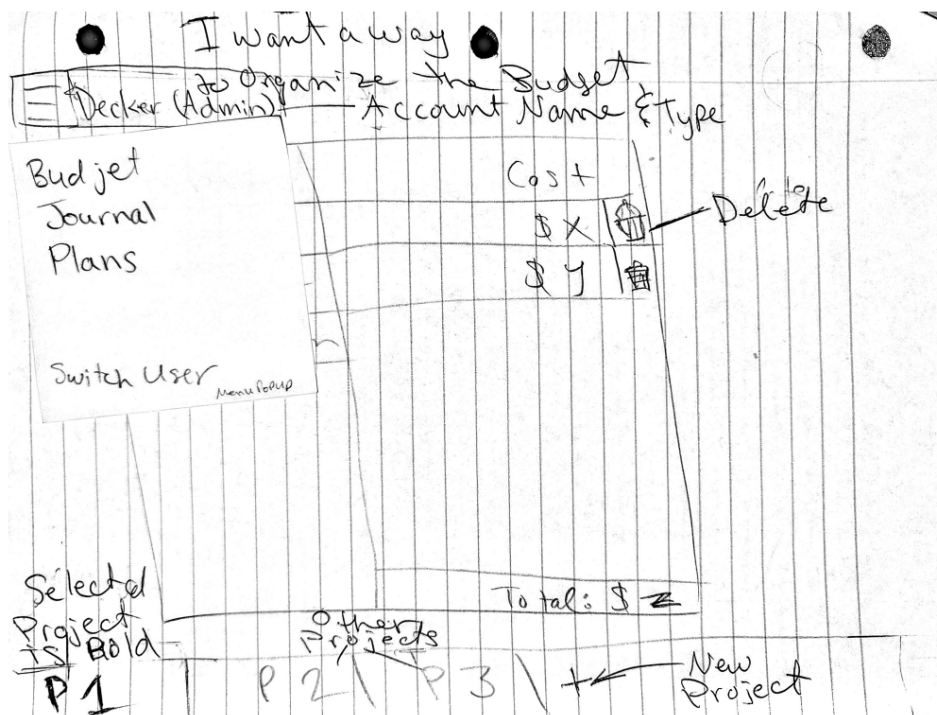 I want a way
to Organize the Budget
Decker (Admin) Account Name & Type
Budjet
Journal
Plans
Switch User
Menu PopUp
Cost
$ X
Delete
$ Y
Total: $ Z
Selectd
Project
is Bold
Other
Projects
P 1
P 2
P 3
+
New
Project